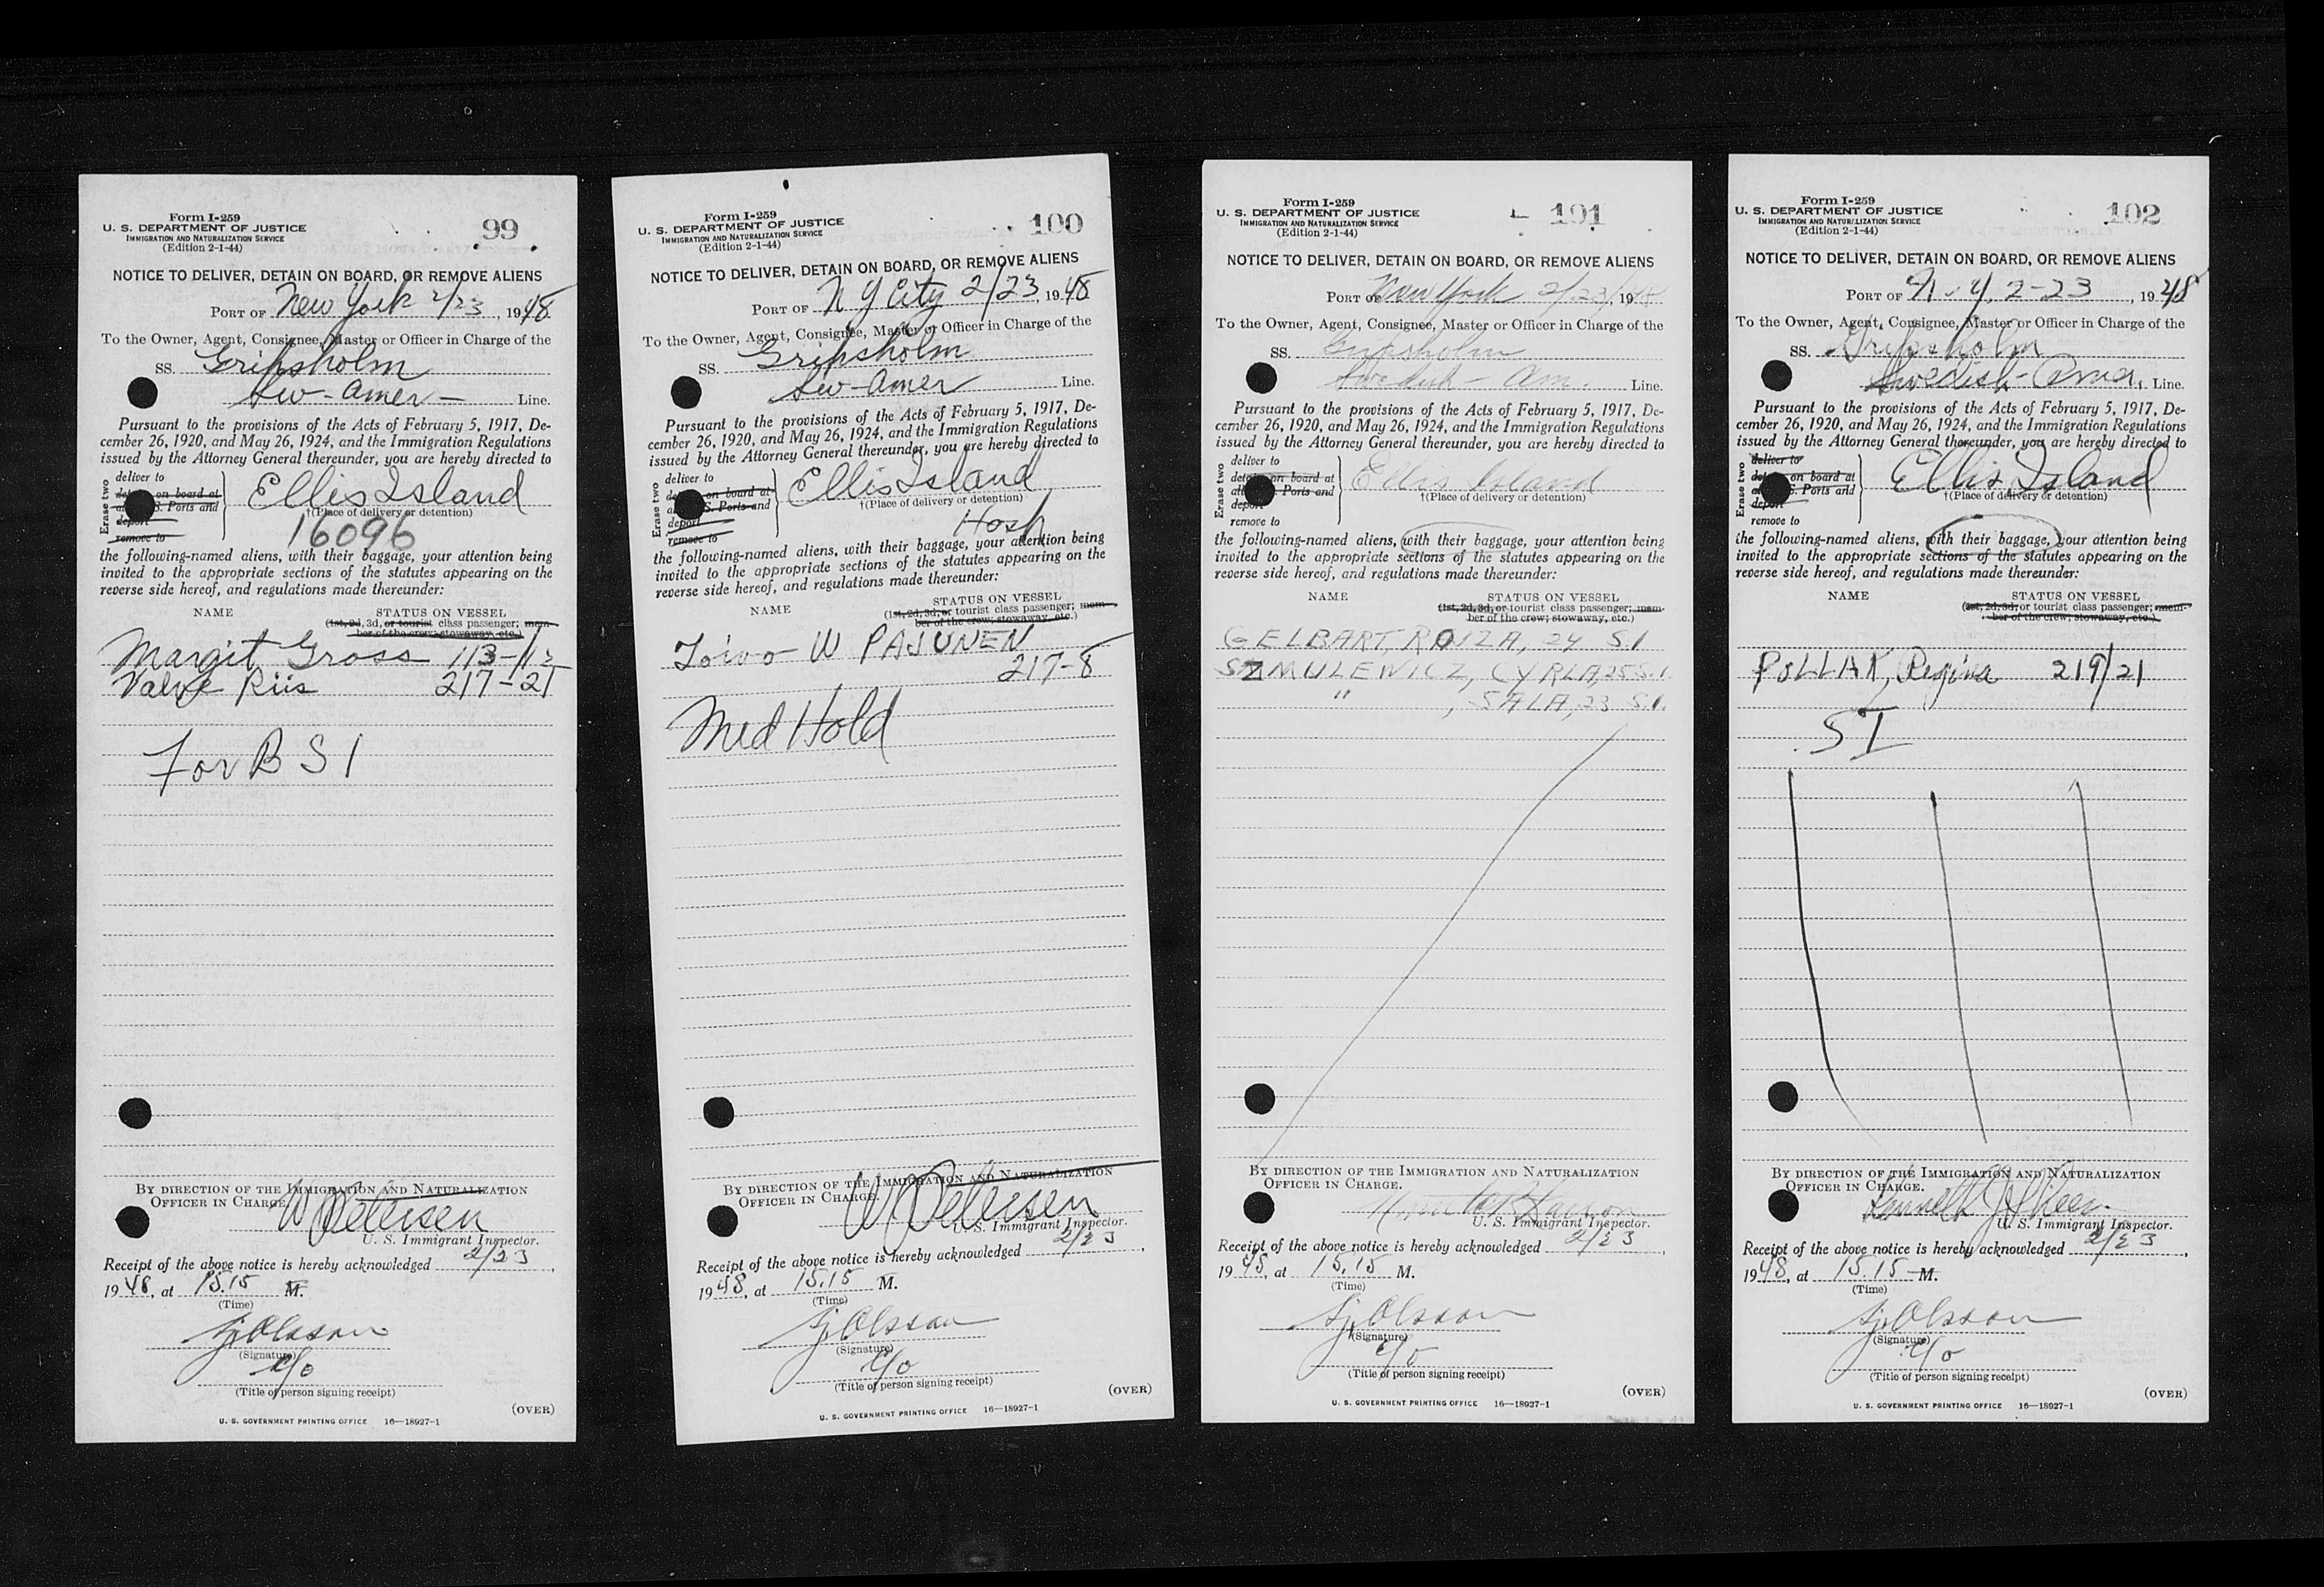 Form I-259
U. S. DEPARTMENT OF JUSTICE
IMMIGRATION AND NATURALIZATION SERVICE
(Edition 2-1-44)
99
NOTICE TO DELIVER, DETAIN ON BOARD, OR REMOVE ALIENS
PORT OF New York 2/23, 1948
To the Owner, Agent, Consignee, Master or Officer in Charge of the
SS. Gripsholm
Sw-Amer- Line.
Pursuant to the provisions of the Acts of February 5, 1917, De-
cember 26, 1920, and May 26, 1924, and the Immigration Regulations
issued by the Attorney General thereunder, you are hereby directed to
Erase two
deliver to
on board at
S. Ports and
deport
remove to
Ellis Island
†(Place of delivery or detention)
16096
the following-named aliens, with their baggage, your attention being
invited to the appropriate sections of the statutes appearing on the
reverse side hereof, and regulations made thereunder:
NAME STATUS ON VESSEL
(1st, 2d, 3d, or tourist class passenger; mem-
ber of the crew; stowaway, etc.)
Margit Gross 113-12
Valve Riis 217-21
For B S I
BY DIRECTION OF THE IMMIGRATION AND NATURALIZATION
OFFICER IN CHARGE.
W Petersen
U. S. Immigrant Inspector.
Receipt of the above notice is hereby acknowledged 2/23,
1948, at 15.15 M.
(Time)
Sj Olsson
(Signature)
c/o
(Title of person signing receipt)
(OVER)
U. S. GOVERNMENT PRINTING OFFICE 16—18927-1
Form I-259
U. S. DEPARTMENT OF JUSTICE
IMMIGRATION AND NATURALIZATION SERVICE
(Edition 2-1-44)
100
NOTICE TO DELIVER, DETAIN ON BOARD, OR REMOVE ALIENS
PORT OF N Y City 2/23, 1948
To the Owner, Agent, Consignee, Master or Officer in Charge of the
SS. Gripsholm
Sw-Amer Line.
Pursuant to the provisions of the Acts of February 5, 1917, De-
cember 26, 1920, and May 26, 1924, and the Immigration Regulations
issued by the Attorney General thereunder, you are hereby directed to
Erase two
deliver to
on board at
S. Ports and
deport
remove to
Ellis Island
†(Place of delivery or detention)
Hosp
the following-named aliens, with their baggage, your attention being
invited to the appropriate sections of the statutes appearing on the
reverse side hereof, and regulations made thereunder:
NAME STATUS ON VESSEL
(1st, 2d, 3d, or tourist class passenger; mem-
ber of the crew; stowaway, etc.)
Toivo W PAJUNEN
217-8
Med Hold
BY DIRECTION OF THE IMMIGRATION AND NATURALIZATION
OFFICER IN CHARGE.
W Petersen
U. S. Immigrant Inspector.
Receipt of the above notice is hereby acknowledged 2/23,
1948, at 15.15 M.
(Time)
Sj Olsson
(Signature)
c/o
(Title of person signing receipt)
(OVER)
U. S. GOVERNMENT PRINTING OFFICE 16—18927-1
Form I-259
U. S. DEPARTMENT OF JUSTICE
IMMIGRATION AND NATURALIZATION SERVICE
(Edition 2-1-44)
101
NOTICE TO DELIVER, DETAIN ON BOARD, OR REMOVE ALIENS
PORT OF New York 2/23/1948
To the Owner, Agent, Consignee, Master or Officer in Charge of the
SS. Gripsholm
Swedish-Am. Line.
Pursuant to the provisions of the Acts of February 5, 1917, De-
cember 26, 1920, and May 26, 1924, and the Immigration Regulations
issued by the Attorney General thereunder, you are hereby directed to
Erase two
deliver to
on board at
Ports and
deport
remove to
Ellis Island
†(Place of delivery or detention)
the following-named aliens, with their baggage, your attention being
invited to the appropriate sections of the statutes appearing on the
reverse side hereof, and regulations made thereunder:
NAME STATUS ON VESSEL
(1st, 2d, 3d, or tourist class passenger; mem-
ber of the crew; stowaway, etc.)
GELBART, ROIZA, 24 S.I
SZMULEWICZ, CYRLA, 25 S.I.
" , SALA, 23 S.I.
BY DIRECTION OF THE IMMIGRATION AND NATURALIZATION
OFFICER IN CHARGE.
U. S. Immigrant Inspector.
Receipt of the above notice is hereby acknowledged 2/23,
1948, at 15.15 M.
(Time)
Sj Olsson
(Signature)
c/o
(Title of person signing receipt)
(OVER)
U. S. GOVERNMENT PRINTING OFFICE 16—18927-1
Form I-259
U. S. DEPARTMENT OF JUSTICE
IMMIGRATION AND NATURALIZATION SERVICE
(Edition 2-1-44)
102
NOTICE TO DELIVER, DETAIN ON BOARD, OR REMOVE ALIENS
PORT OF N.Y. 2-23, 1948
To the Owner, Agent, Consignee, Master or Officer in Charge of the
SS. Gripsholm
Swedish-Amer. Line.
Pursuant to the provisions of the Acts of February 5, 1917, De-
cember 26, 1920, and May 26, 1924, and the Immigration Regulations
issued by the Attorney General thereunder, you are hereby directed to
Erase two
deliver to
on board at
S. Ports and
deport
remove to
Ellis Island
†(Place of delivery or detention)
the following-named aliens, with their baggage, your attention being
invited to the appropriate sections of the statutes appearing on the
reverse side hereof, and regulations made thereunder:
NAME STATUS ON VESSEL
(1st, 2d, 3d, or tourist class passenger; mem-
ber of the crew; stowaway, etc.)
POLLAK, Regina 219/21
SI
BY DIRECTION OF THE IMMIGRATION AND NATURALIZATION
OFFICER IN CHARGE.
Kenneth J.
U. S. Immigrant Inspector.
Receipt of the above notice is hereby acknowledged 2/23,
1948, at 15.15 M.
(Time)
Sj Olsson
(Signature)
c/o
(Title of person signing receipt)
(OVER)
U. S. GOVERNMENT PRINTING OFFICE 16—18927-1